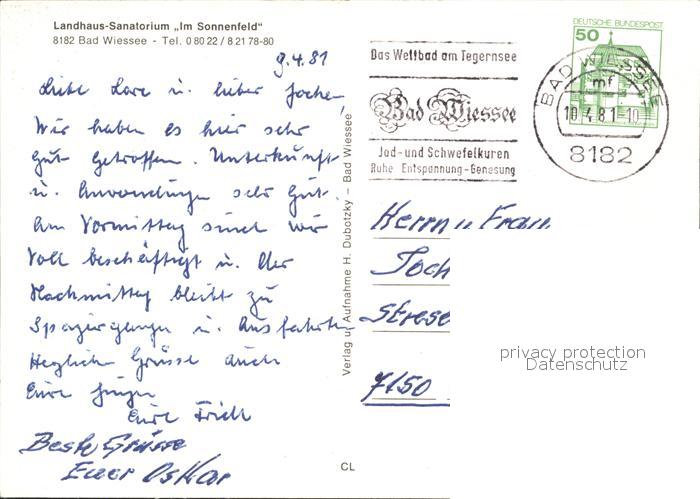 Landhaus-Sanatorium „Im Sonnenfeld“
8182 Bad Wiessee - Tel. 0 80 22 / 8 21 78-80
9.4.81
Liebe Lore u. lieber Jochen,
Wir haben es hier sehr
gut getroffen. Unterkunft
u. Anwendungen sehr gut.
Am Vormittag sind wir
voll beschäftigt u. der
Nachmittag bleibt zu
Spaziergängen u. Ausfahrten
Herzliche Grüsse auch
Eure
Beste Grüsse
Euer Oskar
Verlag u. Aufnahme H. Dubotzky - Bad Wiessee
CL
Das Weltbad am Tegernsee
Bad Wiessee
Jod- und Schwefelkuren
Ruhe Entspannung-Genesung
DEUTSCHE BUNDESPOST
50
BAD WIESSEE
mf
10.4.81-10
8182
Herrn u Frau
Joch
Strese
7150
privacy protection
Datenschutz